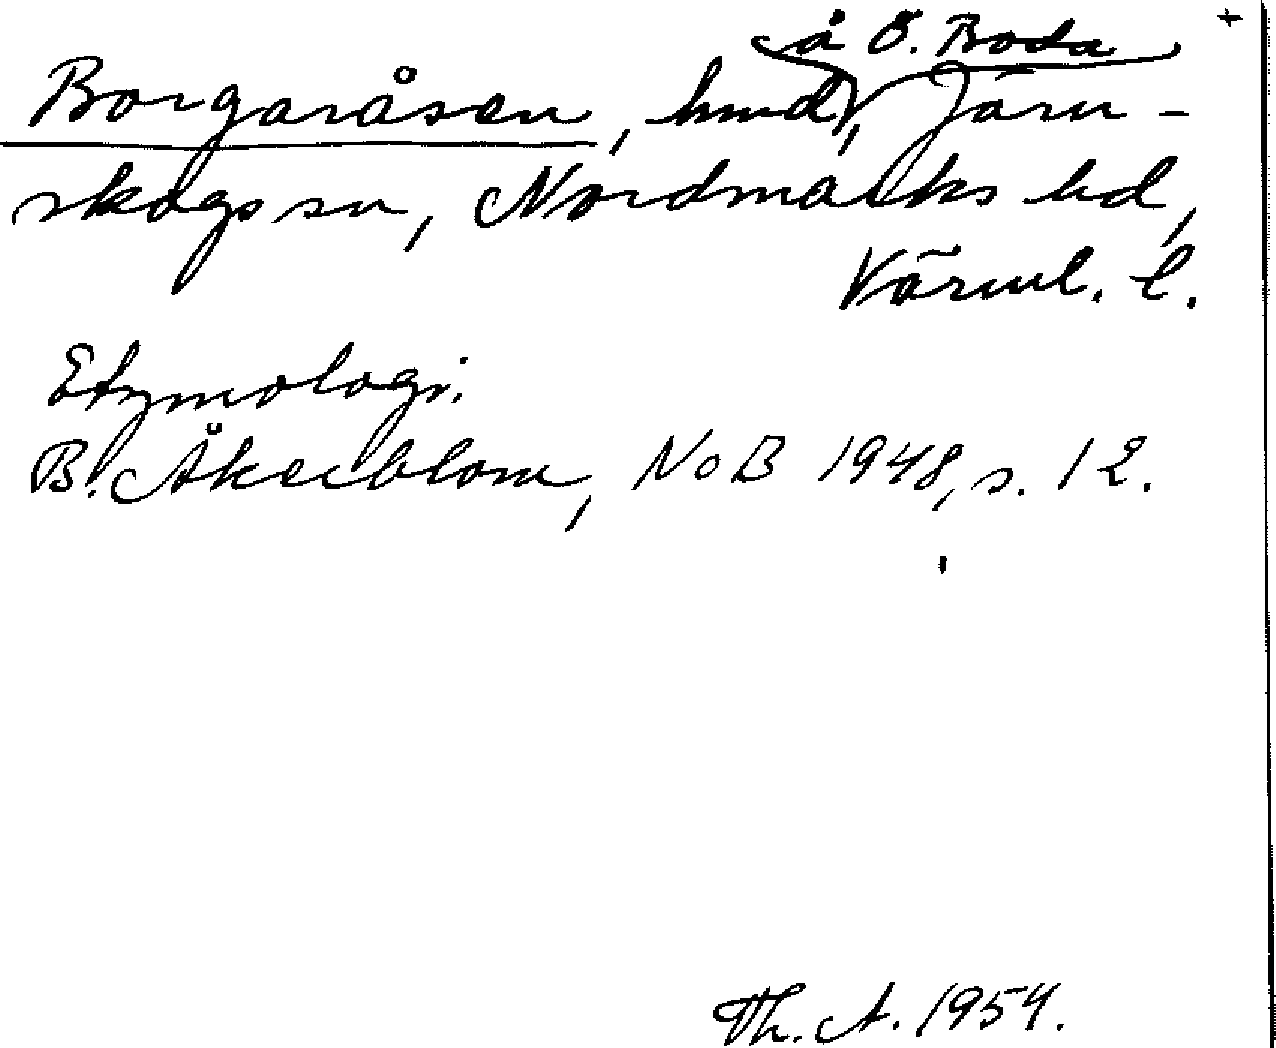 å Ö. Boda +
Borgaråsen, hmd, Järn-
skogs sn, Nordmarks hd,
Värml. l.
Etymologi.
B. Åkerblom, NoB 1948, s. 12.
Th. A. 1954.